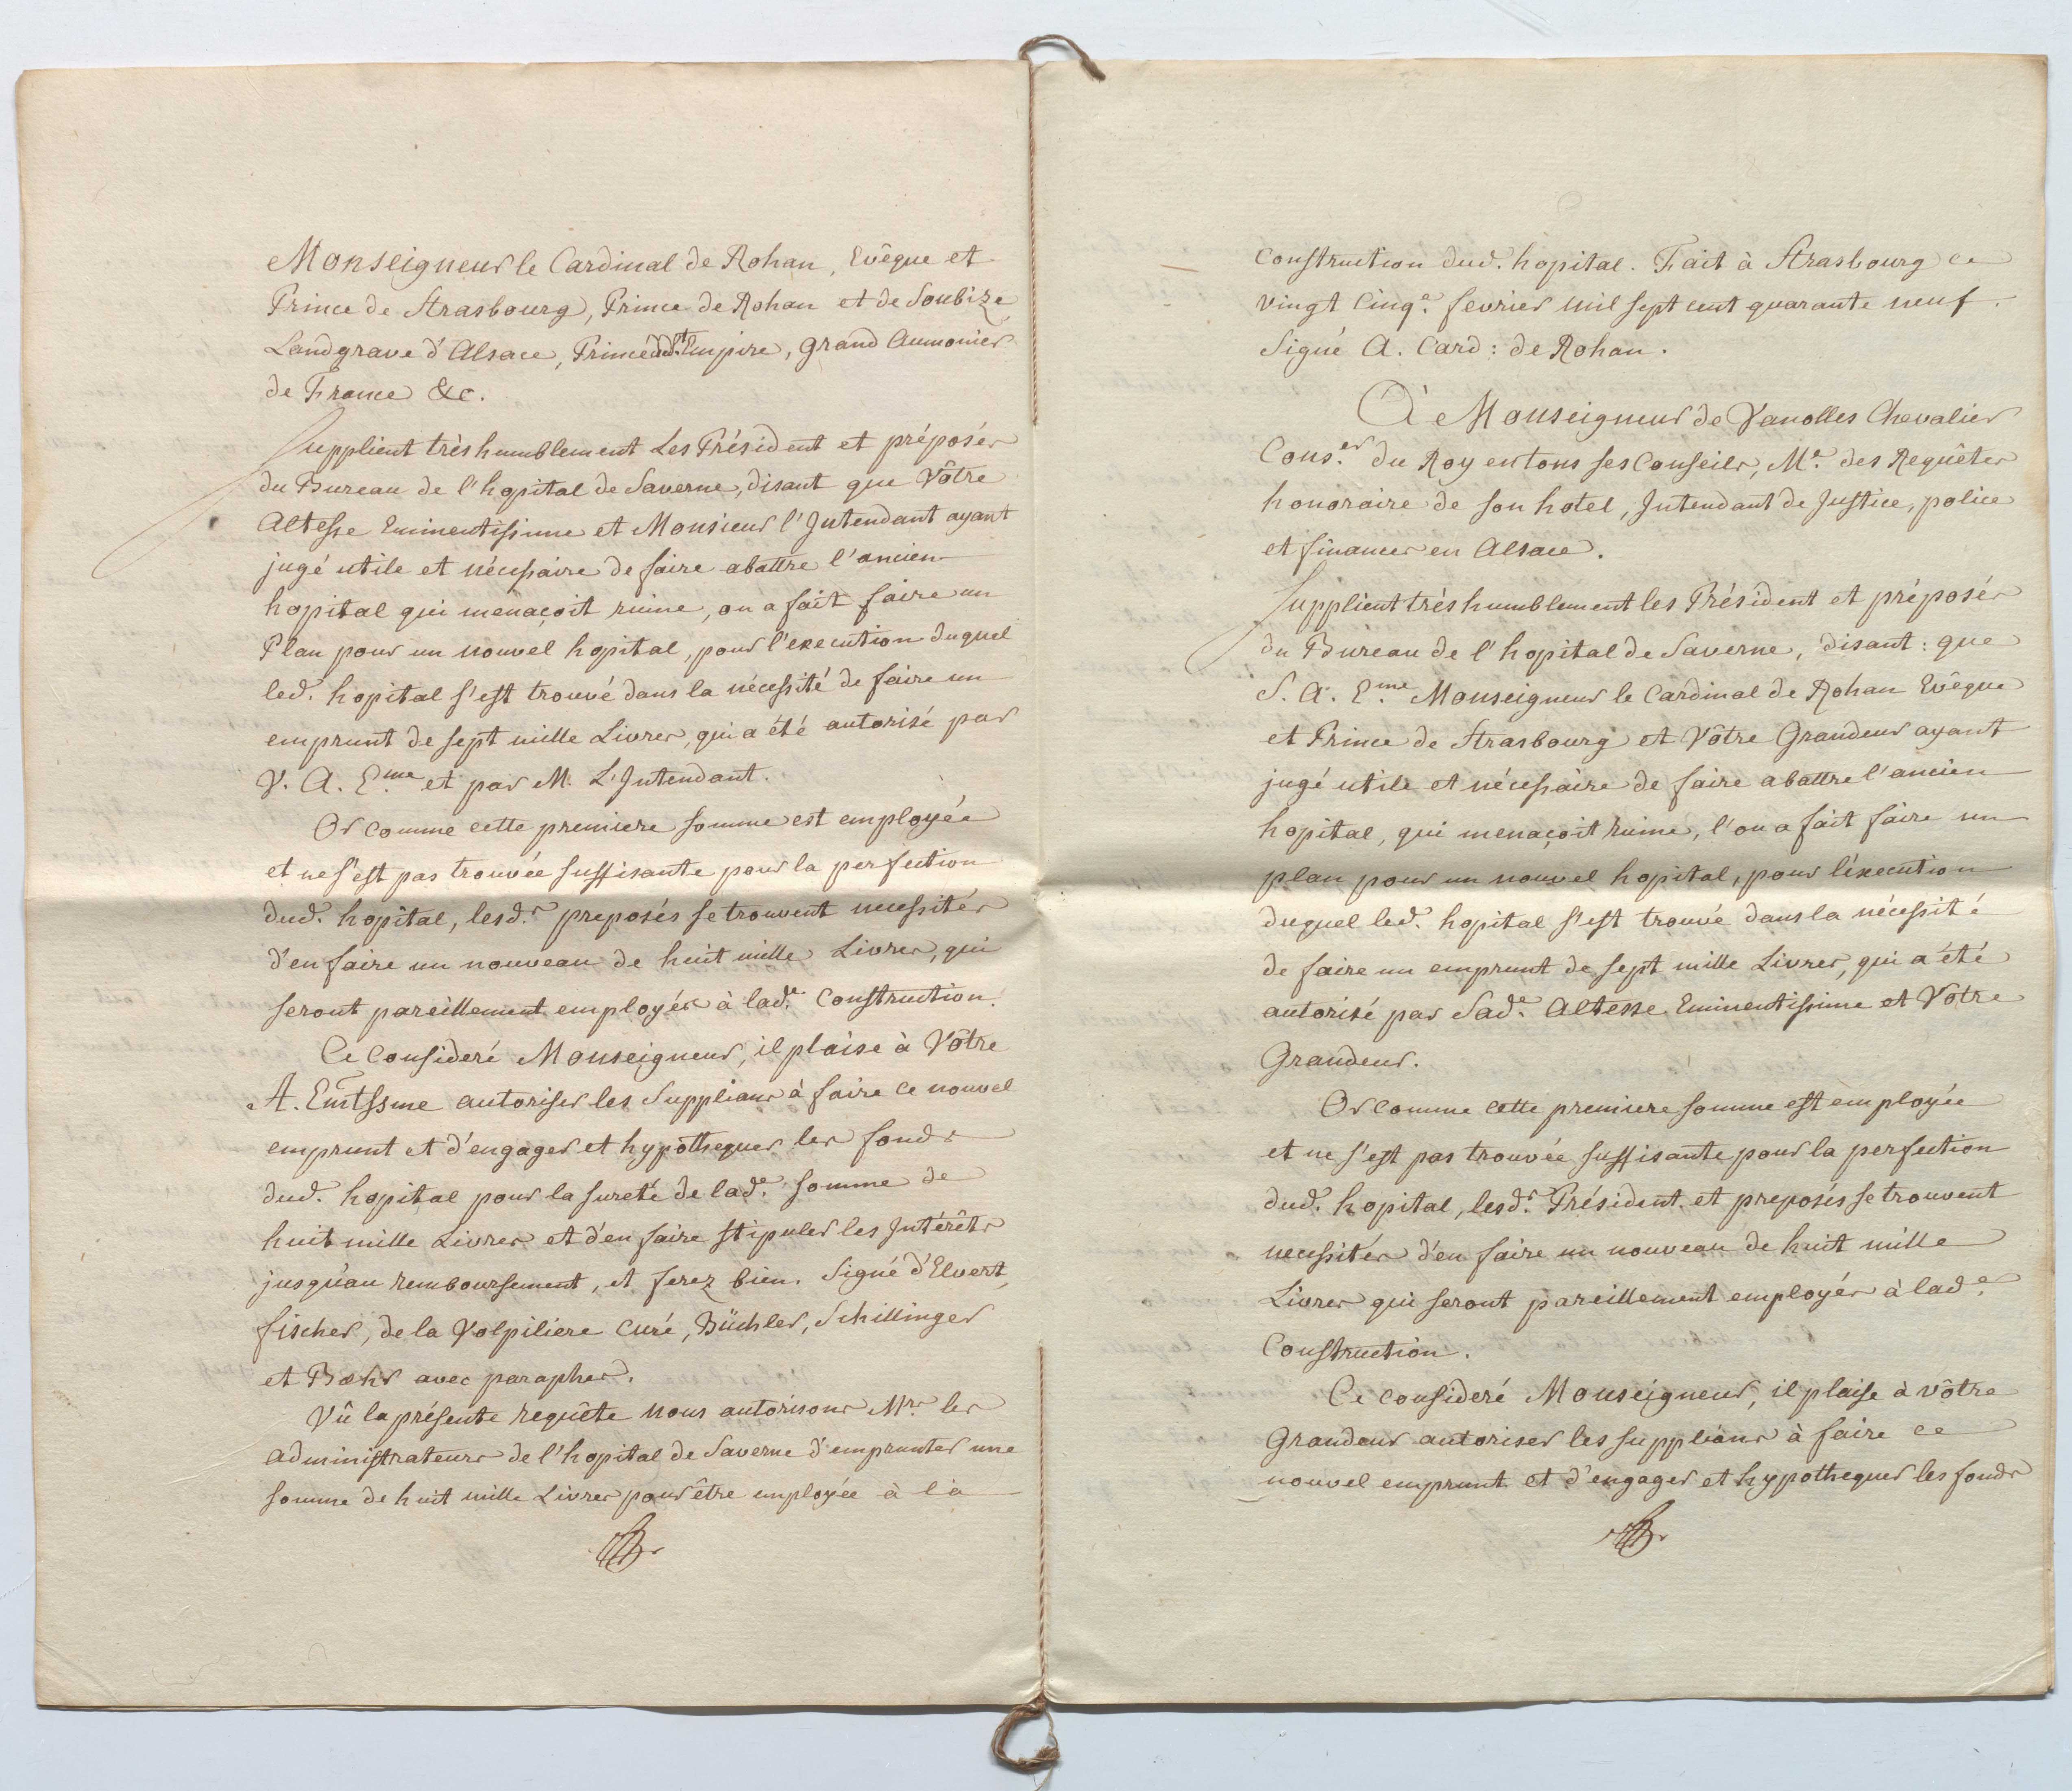 Monseigneur le Cardinal de Rohan, Evêque et
Prince de Strasbourg, Prince de Rohan et de Soubize
Landgrave d'Alsace, Prince du St Empire, grand Aumonier
de France &c.
Supplient très humblement Les Président et préposés
du Bureau de l'hopital de Saverne, disant que Vôtre
Altesse Eminentissime et Monsieur l'Intendant ayant
jugé utile et nécessaire de faire abattre l'ancien
hopital qui menaçoit ruine, on a fait faire un
Plan pour un nouvel hopital, pour l'execution duquel
led. hopital s'est trouvé dans la nécessité de faire un
emprunt de sept mille Livres, qui a été autorisé par
V. A. E.me et par M. L'Intendant.
Or comme cette premiere somme est employée
et ne s'est pas trouvée suffisante pour la perfection
dud. hopital, lesd.s preposés se trouvent necessités
d'en faire un nouveau de huit mille Livres, qui
seront pareillement employés à lad.e Construction.
Ce Consideré Monseigneur, il plaise à Vôtre
A. Emtssme autoriser les Supplians à faire ce nouvel
emprunt et d'engager et hypothequer les fonds
dud. hopital pour la sureté de lad.e somme de
huit mille Livres et d'en faire stipuler les Intérêts
jusqu'au remboursement, et ferez bien. Signé d'Elvert,
fischer, de la Volpiliere Curé, Büchler, Schillinger
et Boehr avec paraphes.
Vû la présente requête nous autorisons Mrs. les
administrateurs de l'hopital de Saverne d'emprunter une
somme de huit mille Livres pour être employée à la
Construction dud. hopital. Fait à Strasbourg ce
vingt Cinq.e fevrier mil sept cent quarante neuf.
Signé A. Card: de Rohan.
À Monseigneur de Vanolles Chevalier
Cons.er du Roy en tous ses Conseils, M.e des Requêtes
honoraire de son hotel, Intendant de Justice, police
et finances en Alsace.
Supplient très humblement les Président et préposés
du Bureau de l'hopital de Saverne, disant: que
S. A. E.me Monseigneur le Cardinal de Rohan Evêque
et Prince de Strasbourg et Vôtre Grandeur ayant
jugé utile et nécessaire de faire abattre l'ancien
hopital, qui menaçoit ruine, l'on a fait faire un
plan pour un nouvel hopital, pour l'éxecution
duquel led. hopital s'est trouvé dans la nécessité
de faire un emprunt de sept mille Livres, qui a été
autorisé par Sad.e Altesse Eminentissime et Votre
Grandeur.
Or comme cette premiere somme est employée
et ne s'est pas trouvée suffisante pour la perfection
dud. hopital, lesd.s Président et preposés se trouvent
necessités d'en faire un nouveau de huit mille
Livres qui seront pareillement employés à lad.e
Construction.
Ce consideré Monseigneur, il plaise à vôtre
Grandeur autoriser les supplians à faire ce
nouvel emprunt et d'engager et hypothequer les fonds